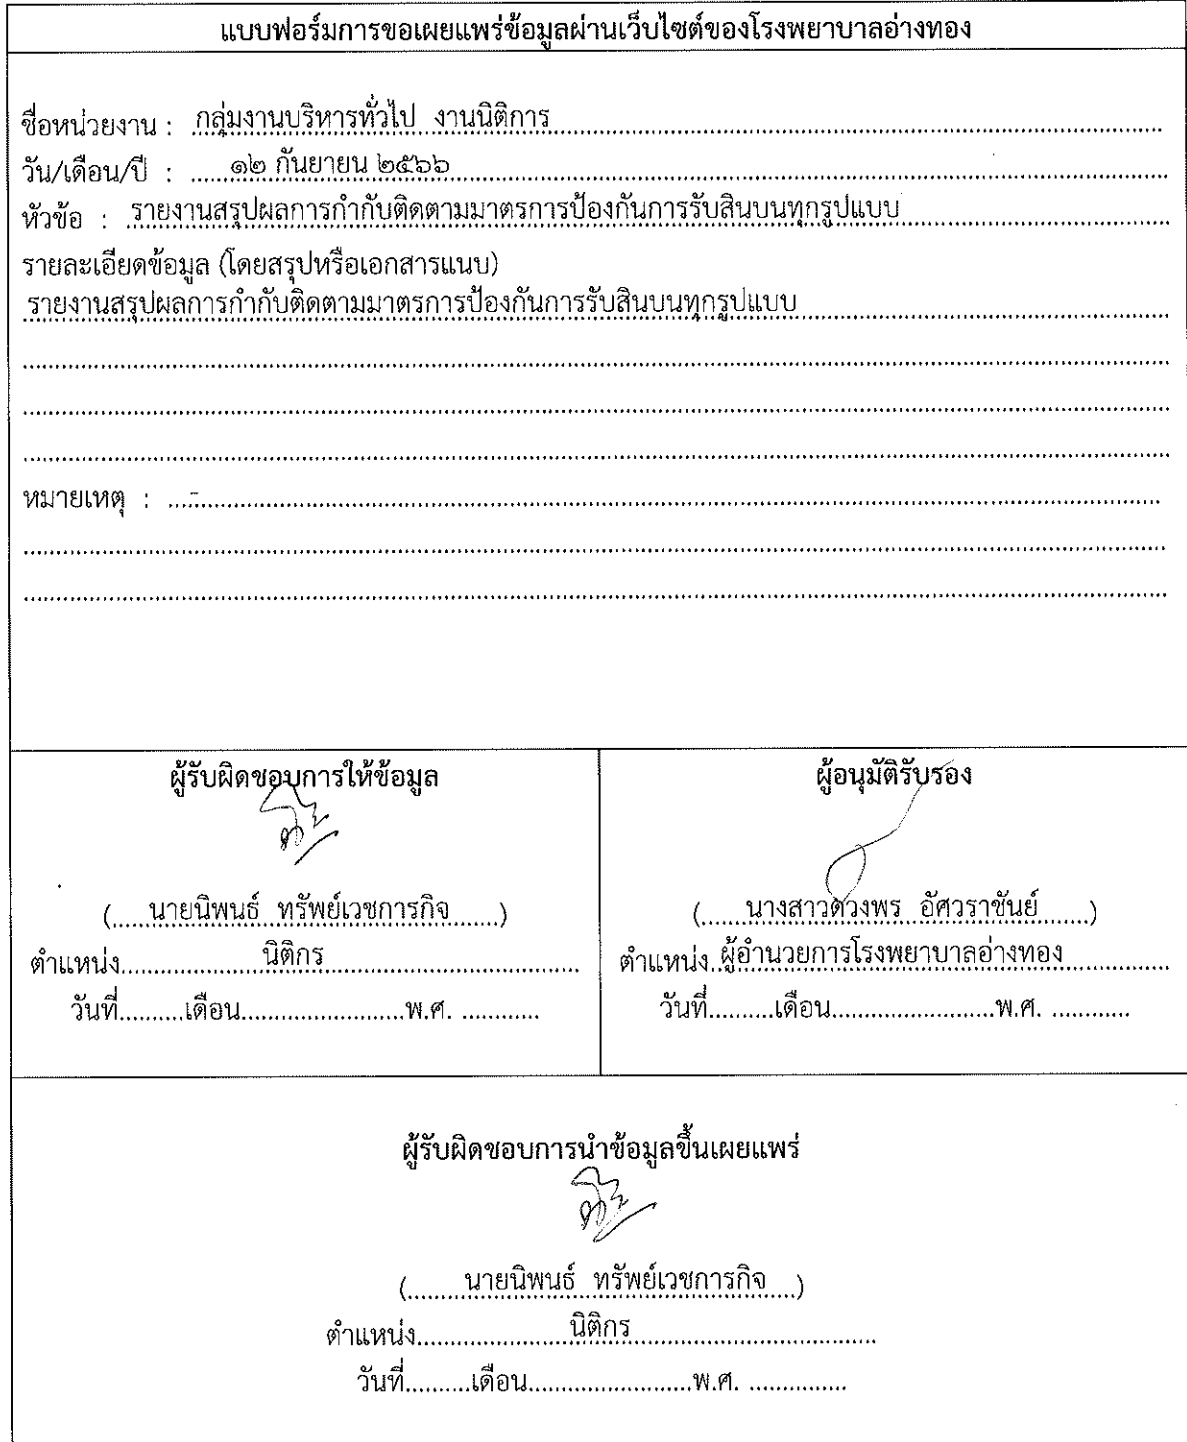 แบบฟอร์มการขอเผยแพร่ข้อมูลผ่านเว็บไซต์ของโรงพยาบาลอ่างทอง
ชื่อหน่วยงาน : กลุ่มงานบริหารทั่วไป งานนิติการ
วัน/เดือน/ปี : ๑๒ กันยายน ๒๕๖๖
หัวข้อ : รายงานสรุปผลการกำกับติดตามมาตรการป้องกันการรับสินบนทุกรูปแบบ
รายละเอียดข้อมูล (โดยสรุปหรือเอกสารแนบ)
รายงานสรุปผลการกำกับติดตามมาตรการป้องกันการรับสินบนทุกรูปแบบ
หมายเหตุ : -
ผู้รับผิดชอบการให้ข้อมูล
(นายนิพนธ์ ทรัพย์เวชการกิจ)
ตำแหน่ง นิติกร
วันที่..........เดือน.........................พ.ศ. ............
ผู้อนุมัติรับรอง
(นางสาวดวงพร อัศวราชันย์)
ตำแหน่ง ผู้อำนวยการโรงพยาบาลอ่างทอง
วันที่..........เดือน.........................พ.ศ. ............
ผู้รับผิดชอบการนำข้อมูลขึ้นเผยแพร่
(นายนิพนธ์ ทรัพย์เวชการกิจ)
ตำแหน่ง นิติกร
วันที่..........เดือน.........................พ.ศ. ...............